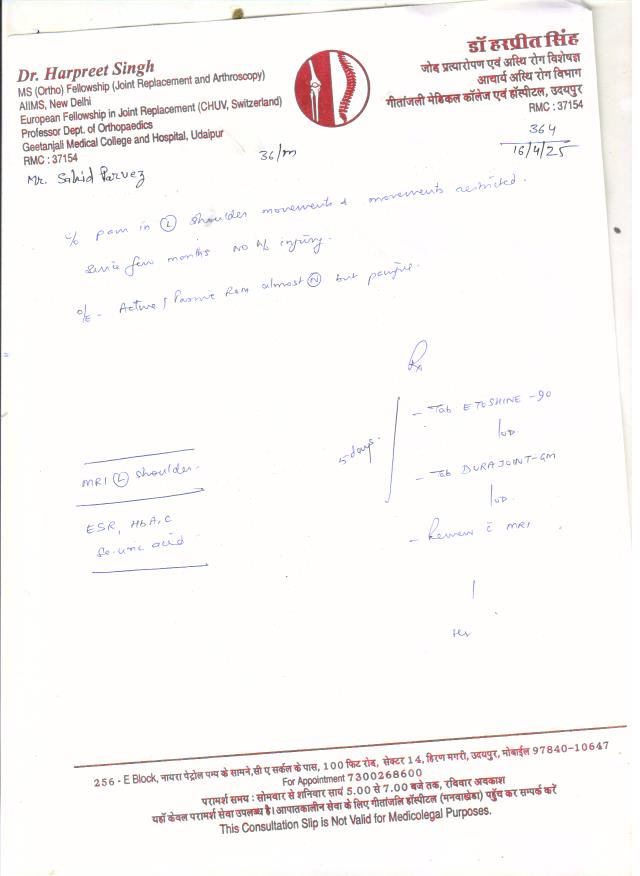 Dr. Harpreet Singh
MS (Ortho) Fellowship (Joint Replacement and Arthroscopy)
AIIMS, New Delhi
European Fellowship in Joint Replacement (CHUV, Switzerland)
Professor Dept. of Orthopaedics
Geetanjali Medical College and Hospital, Udaipur
RMC : 37154
डॉ हरप्रीत सिंह
जोड़ प्रत्यारोपण एवं अस्थि रोग विशेषज्ञ
आचार्य अस्थि रोग विभाग
गीतांजली मेडिकल कॉलेज एवं हॉस्पीटल, उदयपुर
RMC : 37154
364
16/4/25
Mr. Sahid Parvez
36/m
c/o pain in (L) shoulder movements & movements restricted.
Since few months No h/o injury.
o/E - Active / Passive ROM almost (N) but painful.
Rx
5 days
- Tab ETOSHINE -90
OD
- Tab DURAJOINT-GM
OD
- Review c̄ MRI
MRI (L) Shoulder.
ESR, HbA1C
Se. uric acid
256 - E Block, नायरा पेट्रोल पम्प के सामने, सी ए सर्कल के पास, 100 फिट रोड, सेक्टर 14, हिरण मगरी, उदयपुर, मोबाईल 97840-10647
For Appointment 7300268600
परामर्श समय : सोमवार से शनिवार सायं 5.00 से 7.00 बजे तक, रविवार अवकाश
यहाँ केवल परामर्श सेवा उपलब्ध है। आपातकालीन सेवा के लिए गीतांजलि हॉस्पीटल (मनवाखेडा) पहुँच कर सम्पर्क करें
This Consultation Slip is Not Valid for Medicolegal Purposes.